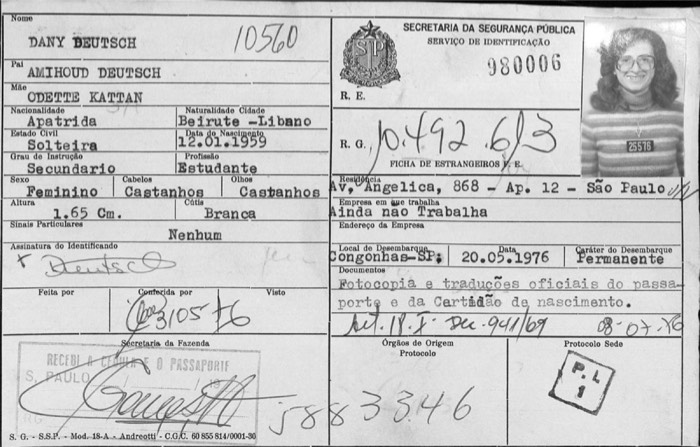 Nome
DANY DEUTSCH
10560
Pai
AMIHOUD DEUTSCH
Mãe
ODETTE KATTAN
Nacionalidade
Naturalidade Cidade
Apatrida
Beirute -Libano
Estado Civil
Data do Nascimento
Solteira
12.01.1959
Grau de Instrução
Profissão
Secundario
Estudante
Sexo
Cabelos
Olhos
Feminino
Castanhos
Castanhos
Altura
Cútis
1.65 Cm.
Branca
Sinais Particulares
Nenhum
Assinatura do Identificando
Deutsch
Feita por
Conferida por
Visto
3105 76
Secretaria da Fazenda
RECEBI A CÉDULA E O PASSAPORTE
S. PAULO
S. G. - S.S.P. - Mod. 18-A - Andreotti - C.G.C. 60 855 814/0001-30
SP
SECRETARIA DA SEGURANÇA PÚBLICA
SERVIÇO DE IDENTIFICAÇÃO
980006
R. E.
R. G.
10.492.613
FICHA DE ESTRANGEIROS F. E.
25576
Residência
Av, Angelica, 868 - Ap. 12 - São Paulo
Empresa em que trabalha
Ainda nao Trabalha
Endereço da Empresa
Local de Desembarque
Data
Caráter do Desembarque
Congonhas-SP;
20.05.1976
Permanente
Documentos
Fotocopia e traduções oficiais do passa-
porte e da Cartidão de nascimento.
Art. 18. I- Dec. 941/69
08-07-76
Órgãos de Origem
Protocolo
Protocolo Sede
5883346
P.L
1